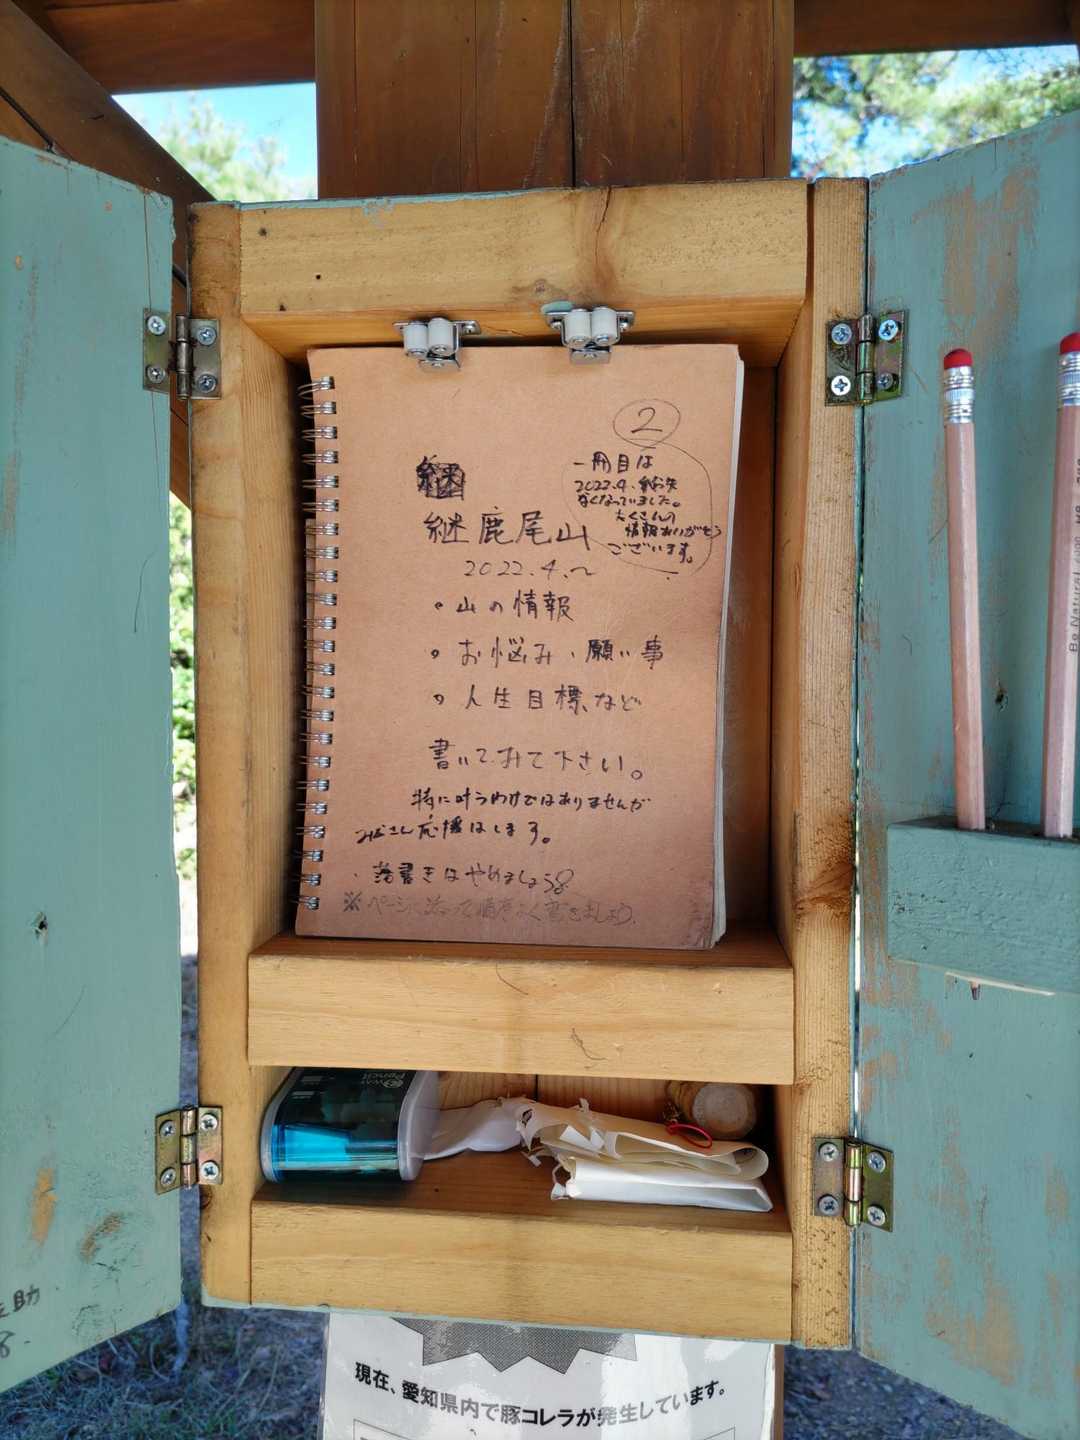 2
一冊目は
2022.4.紛失
なくなっていました。
たくさんの
情報ありがとう
ございます。
継鹿尾山
2022.4.〜
・山の情報
・お悩み、願い事
・人生目標、など
書いてみて下さい。
特に叶うわけではありませんが
みなさん応援はします。
・落書きはやめましょう
※ページに沿って順序よく書きましょう。
Pencil
Be Natural
助
8.
現在、愛知県内で豚コレラが発生しています。